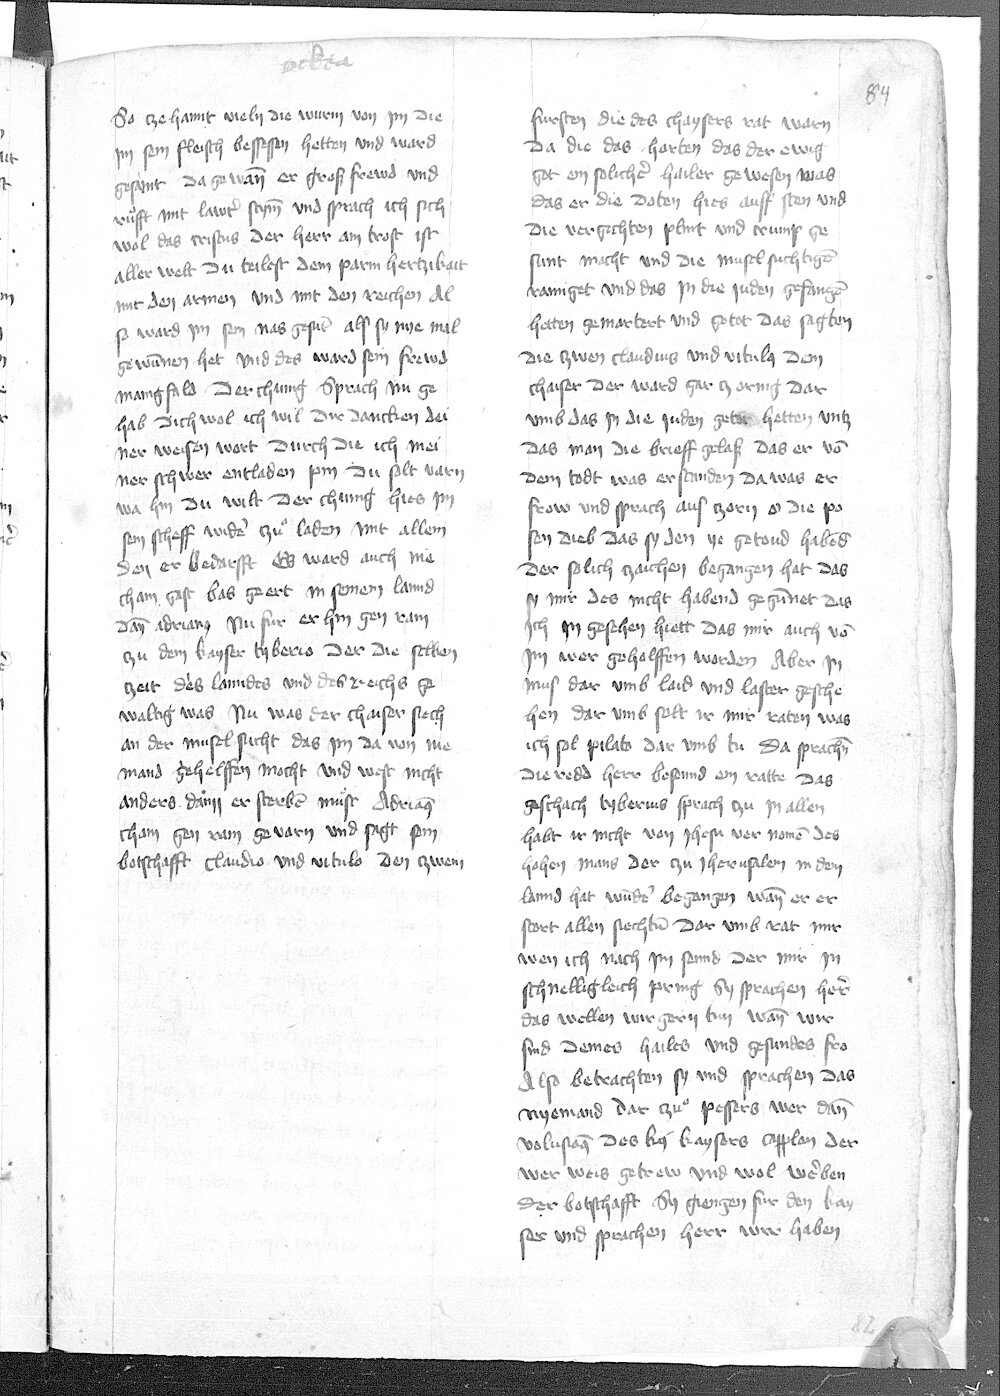 84
So cze hannt vieln die wurm von jm die
jm sein fleisch bessessen hetten vnd ward
gesunt Da gewan̄ er groß frewd vnd
rufft mit lawter stym̄ vnd sprach ich sich
wol das cristus der herr ain trost ist
aller welt Du teilest dein parmhertzikait
mit den armen vnd mit den reichen Al
so ward jm sein nas gesūt als sy nye mal
gewūnen het Vnd des ward sein frewd
manigfald Der chunig Sprach Nu ge
hab dich wol ich wil dir dancken dei
ner weisen wort durch die ich mei
ner schwer entladen pin Du solt varn
wa hin du wilt Der chunig hies jm
sein scheff wider zu laden mit allem
den er bedarfft Es ward auch nie
cham gast bas geert in seinem lannd
dan̄ adrianus Nu fur er hin gen ram
czu dem kayser tyberio der die selben
zeit des lanndes vnd des reichs ge
waltig was Nu was der chaiser siech
an der muselsucht das jm da von nie
mand gehelffen mocht vnd west nicht
anders dann er sterben must Adrianus
cham gen ram gevarn vnd sagt sein
botschafft Claudio vnd vitulo den zwein
fursten die des chaysers rat warn
Da die das horten das der ewig
got ein solicher hailer gewesen was
das er die doten hies auff sten vnd
die vergichten plint vnd crump ge
sunt macht vnd die muselsuchtigen
rainiget vnd das jn die juden gefangen
hetten gemartert vnd getot das sagten
die zwen claudius vnd vitulus dem
chaiser der ward gar zornig dar
vmb das jn die juden getot hetten vntz
das man die brieff gelaß das er vō
dem todt was erstanden da was er
frow vnd sprach aus zorn o die po
sen dieb das sy den ye getoud habend
der solich zaichen begangen hat das
sy mir des nicht habend gegūnet das
ich jn gesehen hiett das mir auch vō
jm wer geholffen worden Aber jn
mus dar vmb laid vnd laster gesche
hen dar vmb solt ir mir raten was
ich sol pilato dar vmb tu Da sprachn̄
die redd herr besennd ein ratte das
geschach tyberius sprach zu jn allen
habt ir nicht von jhesu ver nomē des
hohen mans der czu jherusalem in dem
lannd hat wūder begangen wan̄ er er
stort allen siechtū Dar vmb rat mir
wen ich nach jm sennd der mir jn
schnelligleich pring Sy sprachen herr
das wellen wir gern tun wan̄ wir
sind deines hailes vnd gesundes fro
Also betrachten sy vnd sprachen das
nyemand dar zu pessers wer dan̄
volusianus des kaysers capplan der
wer weis getrew vnd wol werben
der botschafft Sy giengen fur den kay
ser vnd sprachen herr wir haben